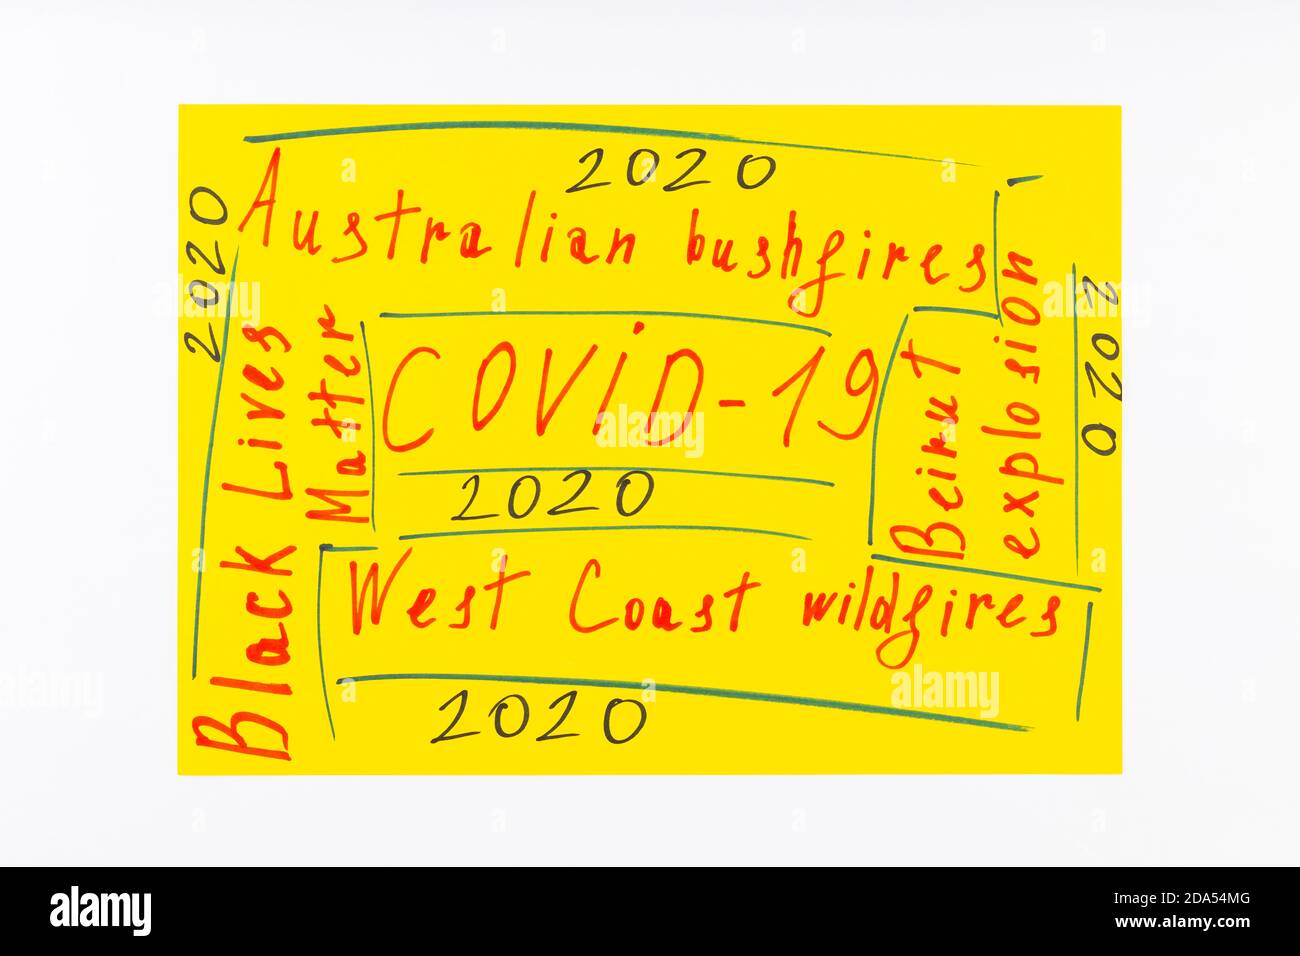 2020
Australian bushfires
2020
Black Lives
Matter
COVID-19
2020
Beirut
explosion
2020
West Coast wildfires
2020
a alamy
alamy
Image ID: 2DA54MG
www.alamy.com